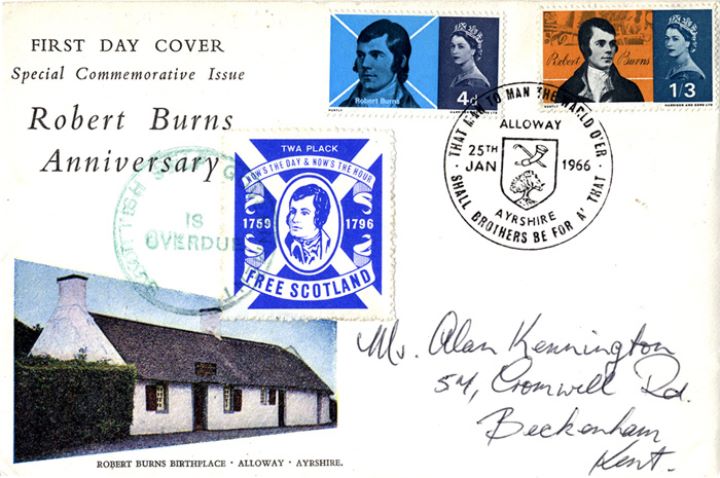 FIRST DAY COVER
Special Commemorative Issue
Robert Burns
Anniversary
Robert Burns
4d
Robert Burns
1/3
HARRISON AND SONS LTD
THAT MAN TO MAN THE WORLD O'ER
ALLOWAY
25TH
JAN
1966
AYRSHIRE
SHALL BROTHERS BE FOR A' THAT
TWA PLACK
NOW'S THE DAY & NOW'S THE HOUR
1759 1796
FREE SCOTLAND
IS
OVERDUE
Mr. Alan Kennington
54, Cromwell Rd.
Beckenham
Kent.
ROBERT BURNS BIRTHPLACE · ALLOWAY · AYRSHIRE.